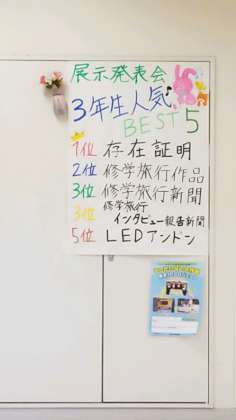 展示発表会
3年生人気
BEST5
1位 存在証明
2位 修学旅行作品
3位 修学旅行新聞
3位 修学旅行
インタビュー報告新聞
5位 LEDアンドン